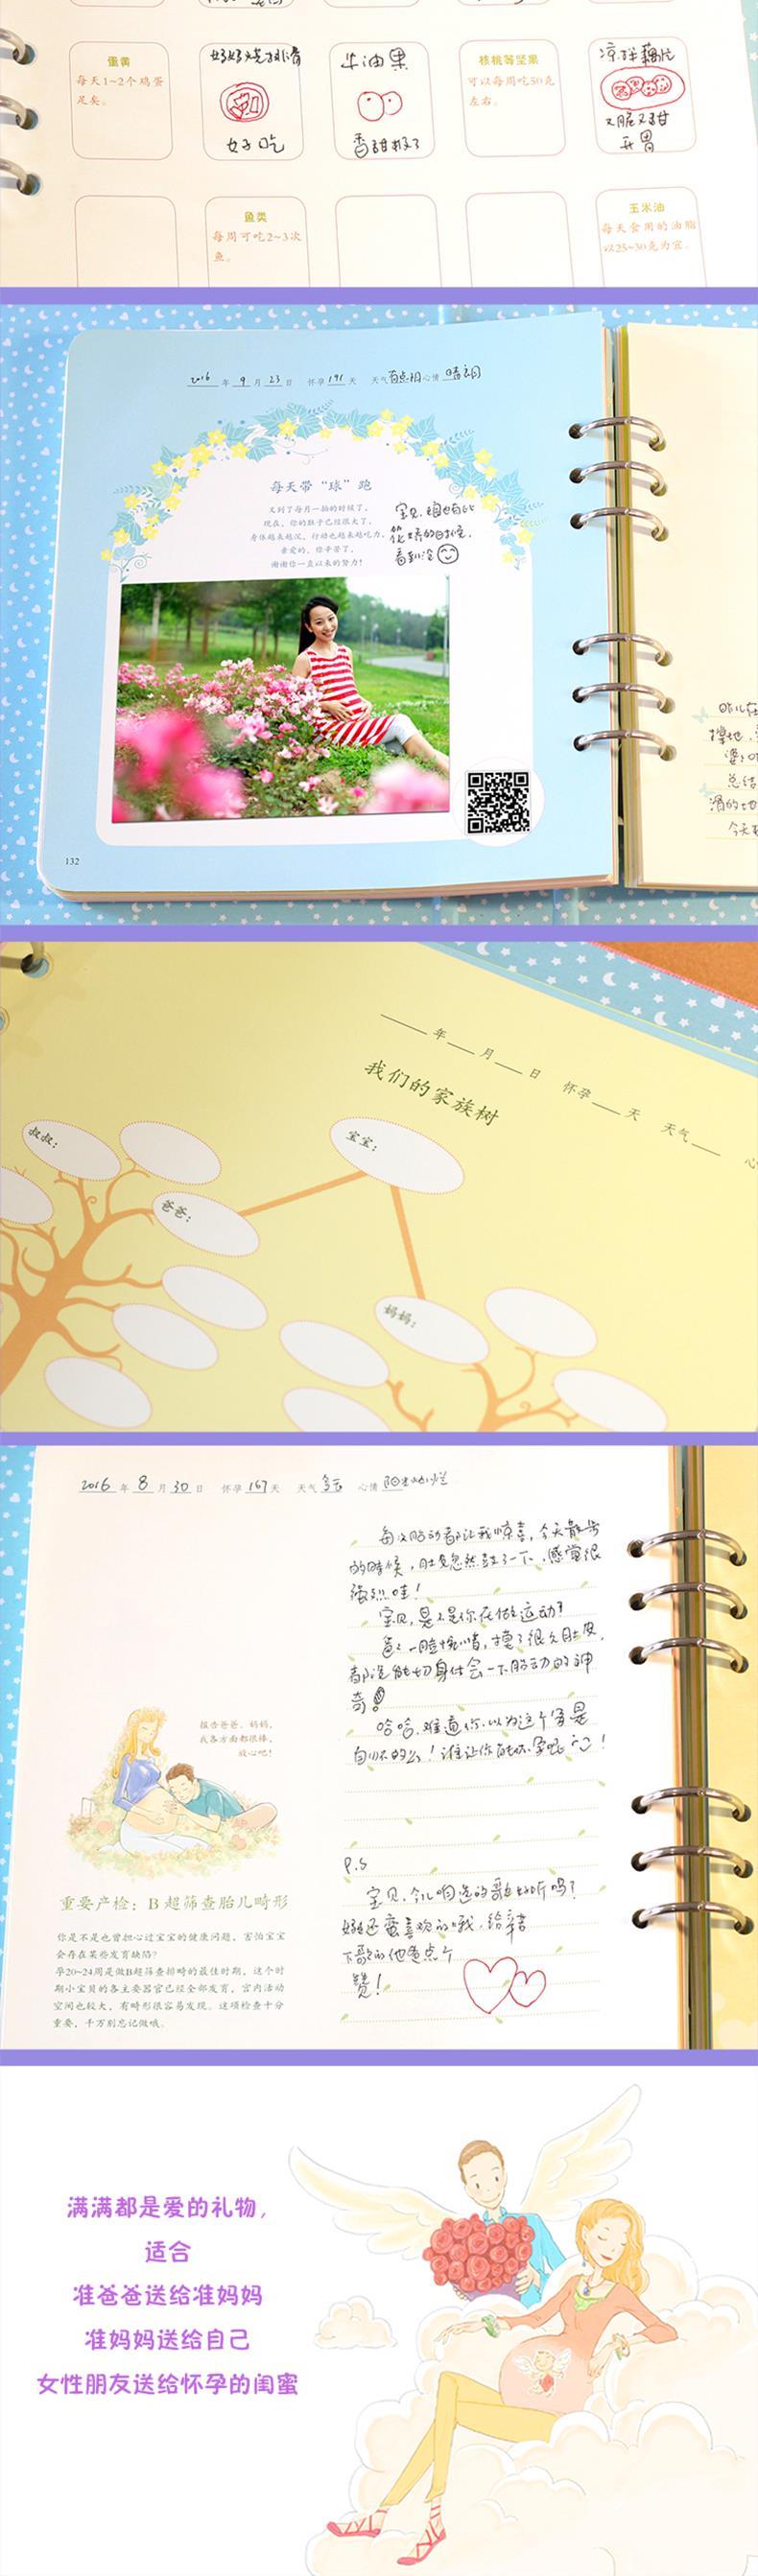 蛋黄
每天1~2个鸡蛋
足矣。
好吃
牛油果
香甜极了
核桃等坚果
可以每周吃50克
左右。
凉拌藕片
又脆又甜
开胃
鱼类
每周可吃2~3次
鱼。
玉米油
每天食用的油脂
以25~30克为宜。
2016 年 9 月 23 日 怀孕 191 天 天气 心情 晴朗
每天带“球”跑
又到了每月一拍的时候了，
现在，你的肚子已经很大了，
身体越来越沉，行动也越来越吃力，
亲爱的，你辛苦了，
谢谢你一直以来的努力！
宝贝，妈也有如
花样的时候，
看到没
132
昨儿在
撑地，
婆
总结
滑的地
今天
年 月 日 怀孕 天 天气 心
我们的家族树
叔叔：
宝宝：
爸爸：
妈妈：
2016 年 8 月 30 日 怀孕 167 天 天气 多云 心情 阳光灿烂
每次胎动都让我惊喜，今天散步
的时候，肚皮忽然鼓了一下，感觉很
强烈哇！
宝贝，是不是你在做运动？
爸爸一脸惋惜，摸了很久肚皮，
都没能切身体会一下胎动的神
奇
哈哈，难道你以为这个宝是
自個的么！谁让你
报告爸爸、妈妈，
我各方面都很棒，
放心吧！
重要产检：B 超筛查胎儿畸形
你是不是也曾担心过宝宝的健康问题，害怕宝宝
会存在某些发育缺陷？
孕20~24周是做B超筛查排畸的最佳时期，这个时
期小宝贝的各主要器官已经全部发育，宫内活动
空间也较大，有畸形很容易发现。这项检查十分
重要，千万别忘记做哦。
P.S
宝贝，今儿咱选的歌好听吗？
妈还蛮喜欢的哦，给辛苦
下歌的他爸点个
赞！
满满都是爱的礼物，
适合
准爸爸送给准妈妈
准妈妈送给自己
女性朋友送给怀孕的闺蜜